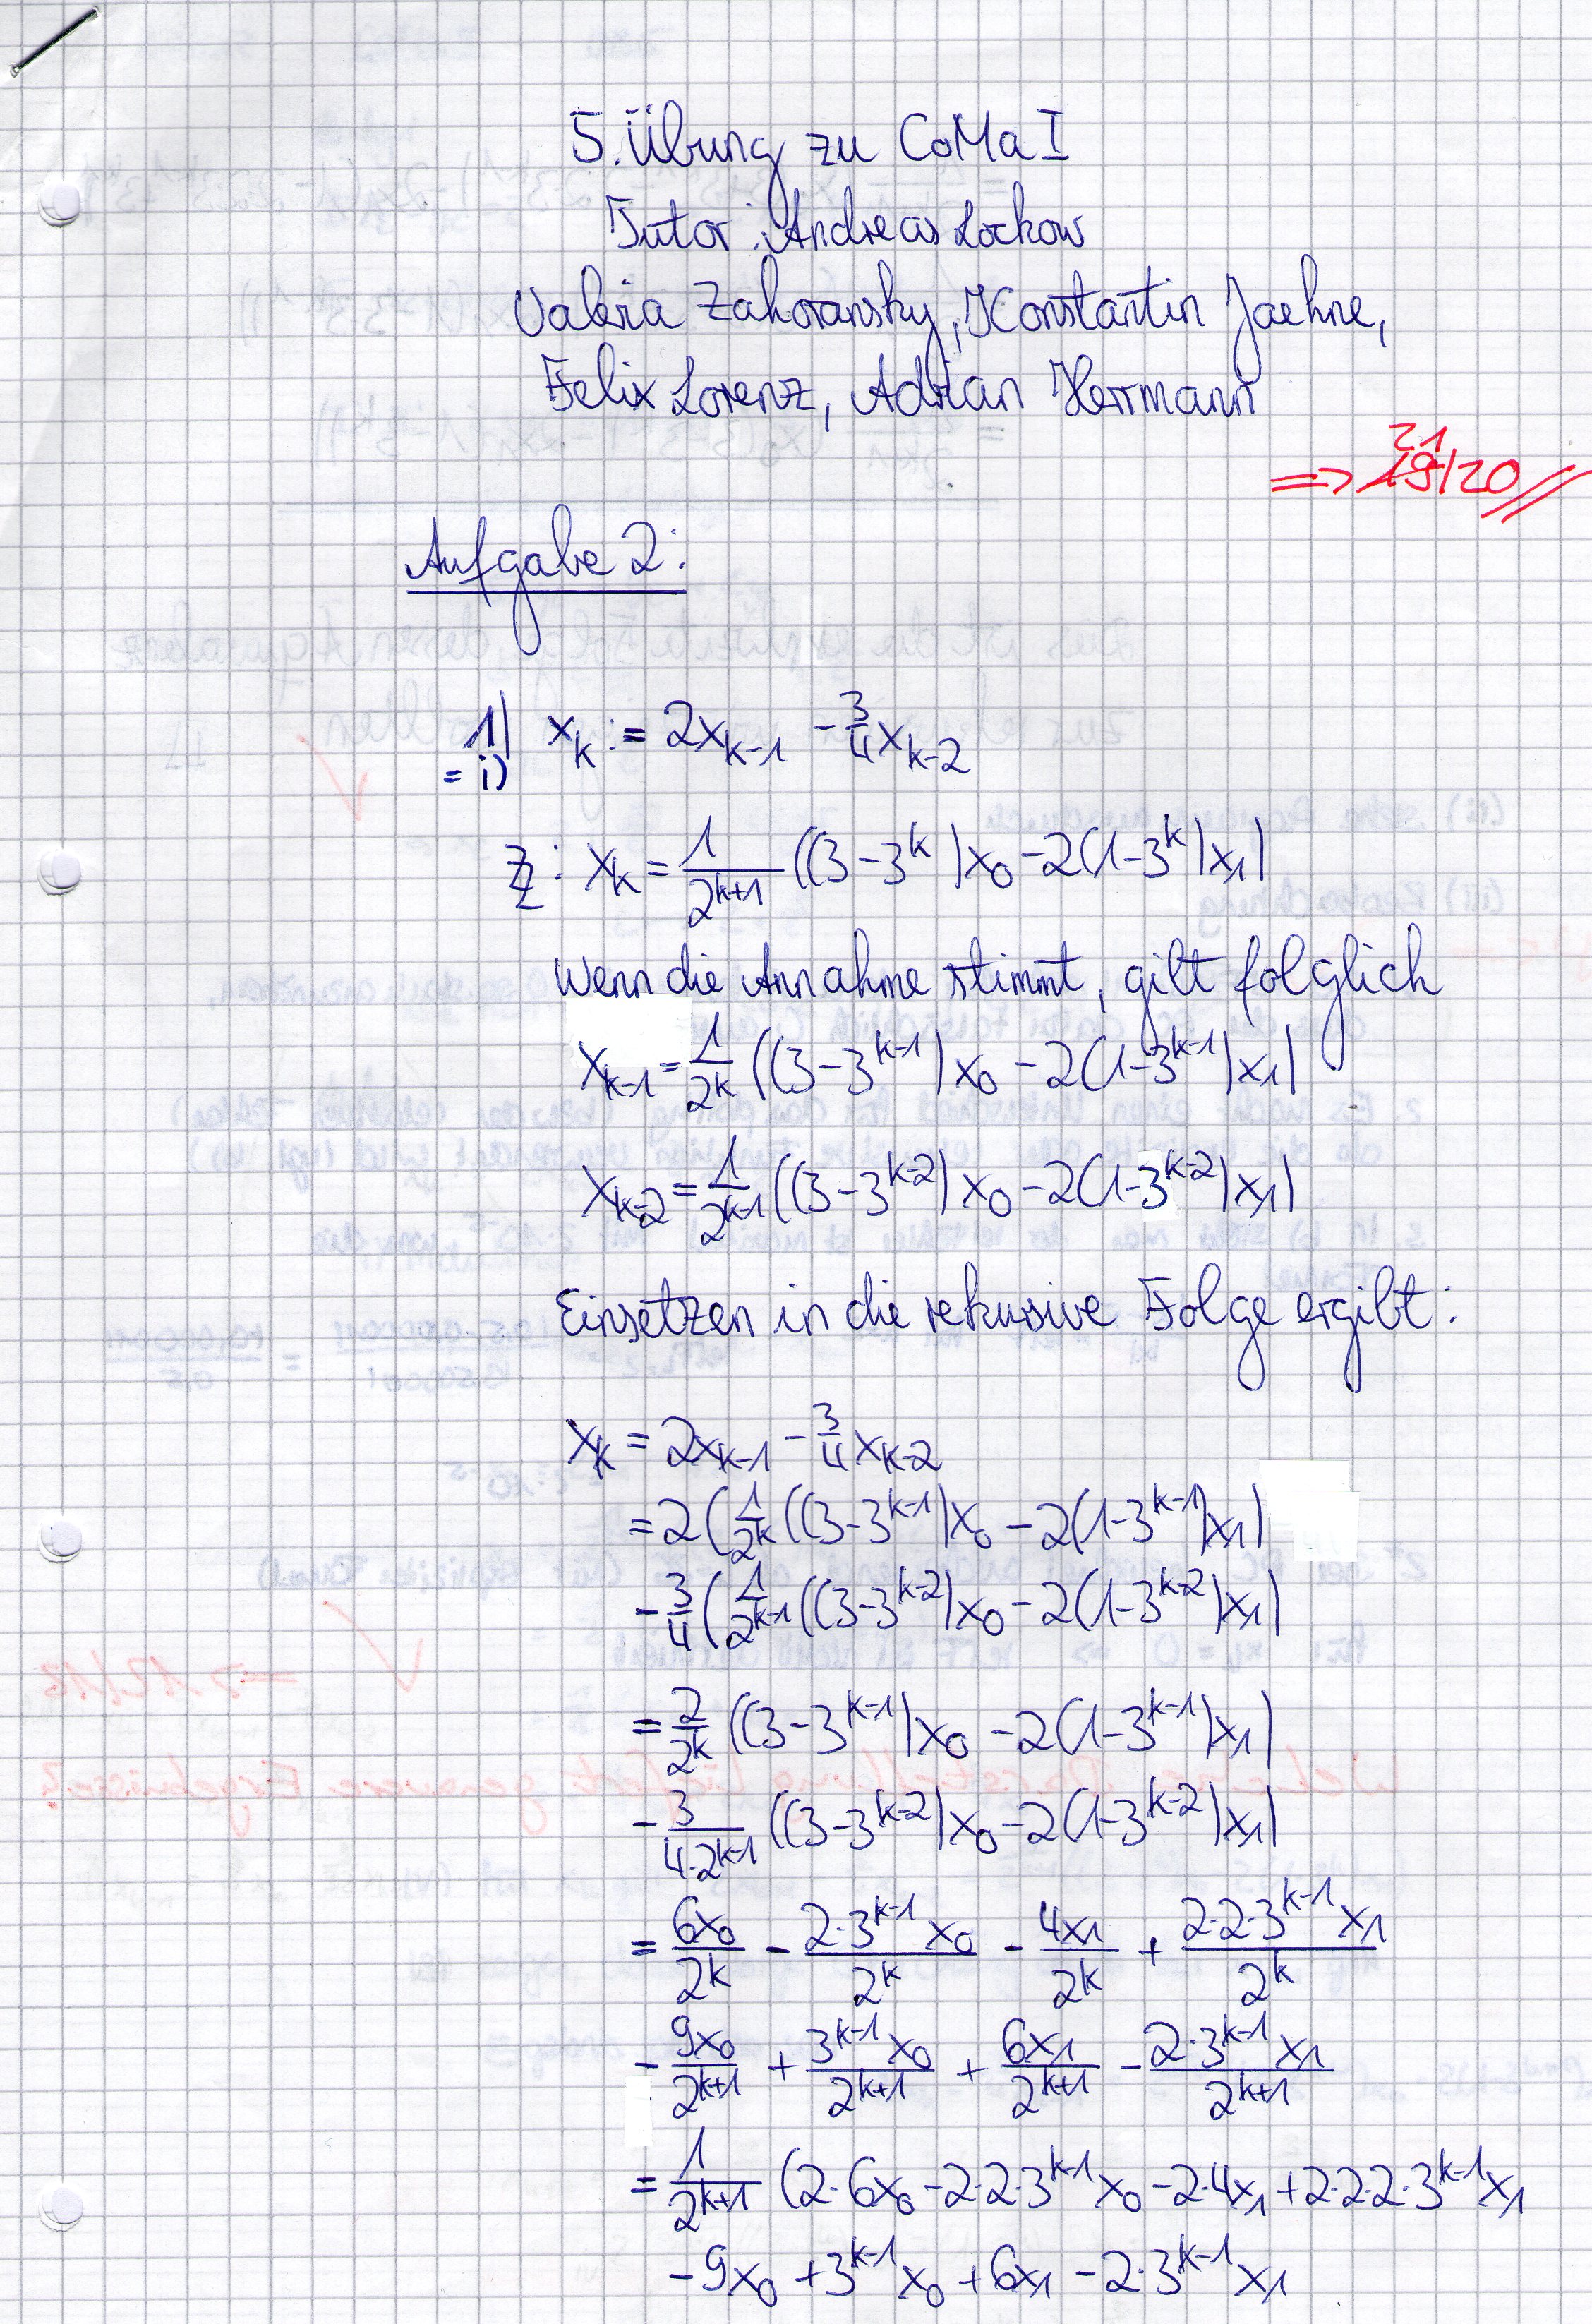 5. Übung zu CoMa I
Tutor: Andreas Lockow
Valeria Zahoransky, Konstantin Jaehne,
Felix Lorenz, Adrian Herrmann
=> 19 21/20
Aufgabe 2:
1) x_k := 2x_{k-1} - 3/4 x_{k-2}
= i)
Z: x_k = 1/2^{k+1} ((3-3^k)x_0 - 2(1-3^k)x_1)
Wenn die Annahme stimmt, gilt folglich
x_{k-1} = 1/2^k ((3-3^{k-1})x_0 - 2(1-3^{k-1})x_1)
x_{k-2} = 1/2^{k-1} ((3-3^{k-2})x_0 - 2(1-3^{k-2})x_1)
Einsetzen in die rekursive Folge ergibt:
x_k = 2x_{k-1} - 3/4 x_{k-2}
= 2(1/2^k ((3-3^{k-1})x_0 - 2(1-3^{k-1})x_1)
- 3/4 (1/2^{k-1} ((3-3^{k-2})x_0 - 2(1-3^{k-2})x_1)
= 2/2^k ((3-3^{k-1})x_0 - 2(1-3^{k-1})x_1)
- 3/(4·2^{k-1}) ((3-3^{k-2})x_0 - 2(1-3^{k-2})x_1)
= 6x_0/2^k - 2·3^{k-1}x_0/2^k - 4x_1/2^k + 2·2·3^{k-1}x_1/2^k
- 9x_0/2^{k+1} + 3^{k-1}x_0/2^{k+1} + 6x_1/2^{k+1} - 2·3^{k-1}x_1/2^{k+1}
= 1/2^{k+1} (2·6x_0 - 2·2·3^{k-1}x_0 - 2·4x_1 + 2·2·2·3^{k-1}x_1
- 9x_0 + 3^{k-1}x_0 + 6x_1 - 2·3^{k-1}x_1